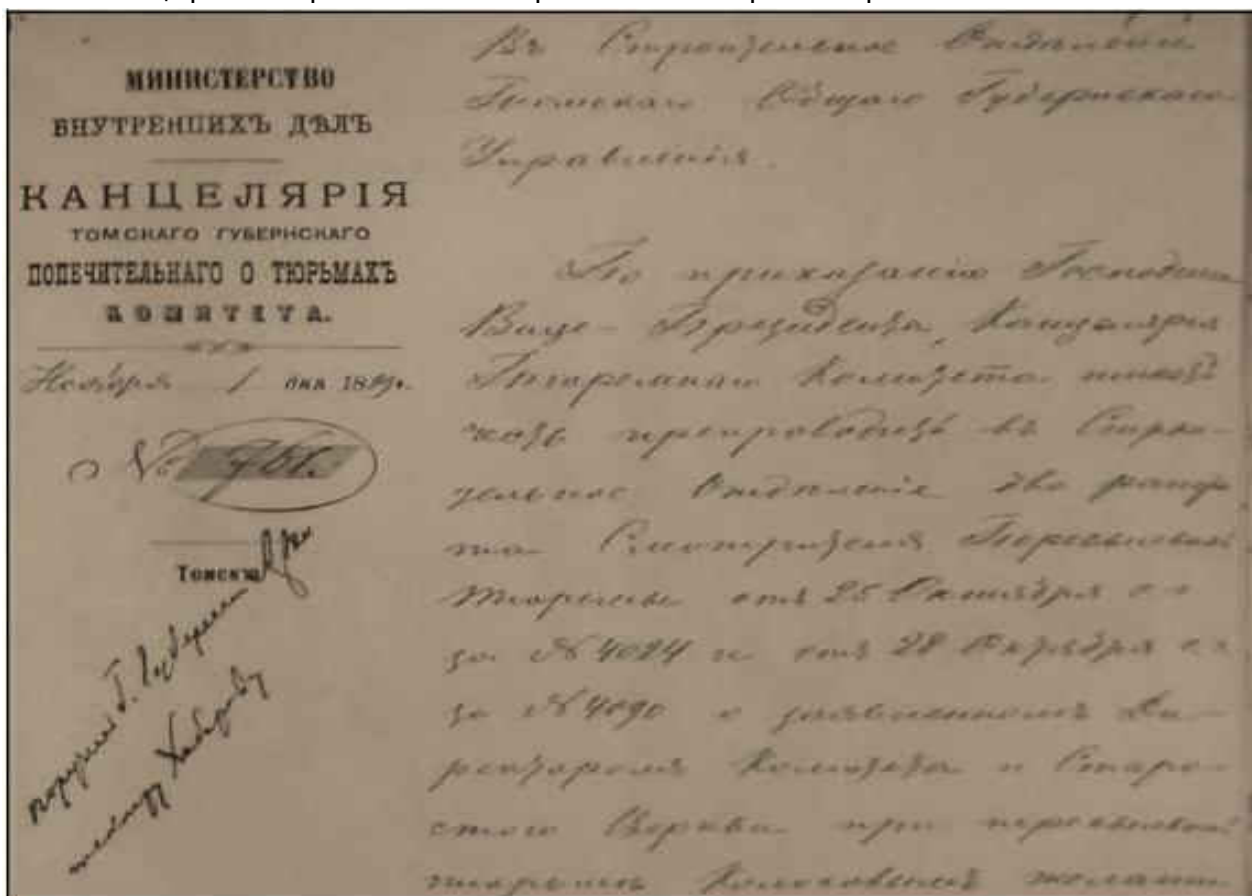 МИНИСТЕРСТВО
ВНУТРЕННИХЪ ДѢЛЪ
КАНЦЕЛЯРІЯ
ТОМСКАГО ГУБЕРНСКАГО
ПОПЕЧИТЕЛЬНАГО О ТЮРЬМАХЪ
КОМИТЕТА.
Ноября 1 дня 18
№
Томскъ
поручено Г.
Въ Строительное Отдѣленіе
Томскаго Общаго Губернскаго
Управленія.
По приказанію Господина
Вице-Президента, Канцелярія
Тюремнаго Комитета
препроводить въ Строи-
тельное Отдѣленіе два рапор
та Смотрителя Пересыльной
Тюрьмы отъ 25 Октября с.г.
за № 4024 и отъ 28 Октября с.г.
за № 4090 о заявленномъ Ди-
ректоромъ Комитета и Старо-
стою Церкви при пересыльной
тюрьмѣ